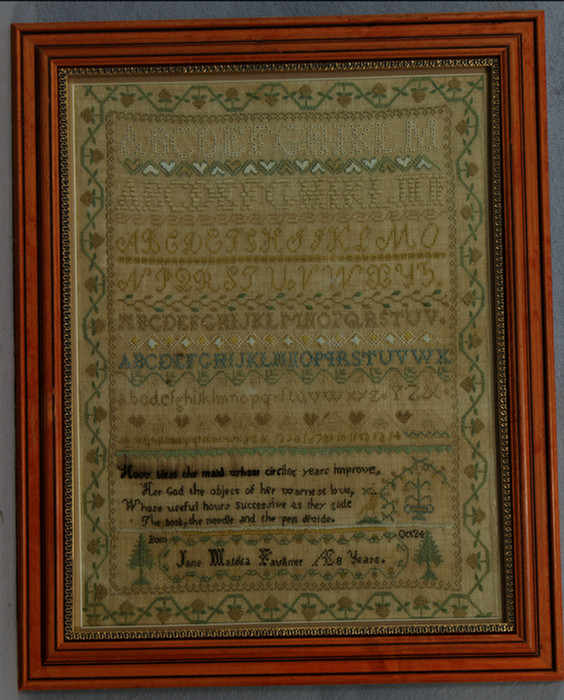 ABCDEFGHIJKLM
ABCDEFGHIKLM
ABCDEFGHIJKLMO
NPQRSTUVWXYZ
ABCDEFGHIJKLMNOPQRSTUV.
ABCDEFGHIJKLMNOPQRSTUVWX
abcdefghijklmnopqrstuvwxyz. YZ&.
How blest the maid whom circling years improve,
Her God the object of her warmest love,
Whose useful hours successive as they glide
The book, the needle and the pen divide.
Born Oct 24
Jane Matilda Faulkner Æ 8 Years.